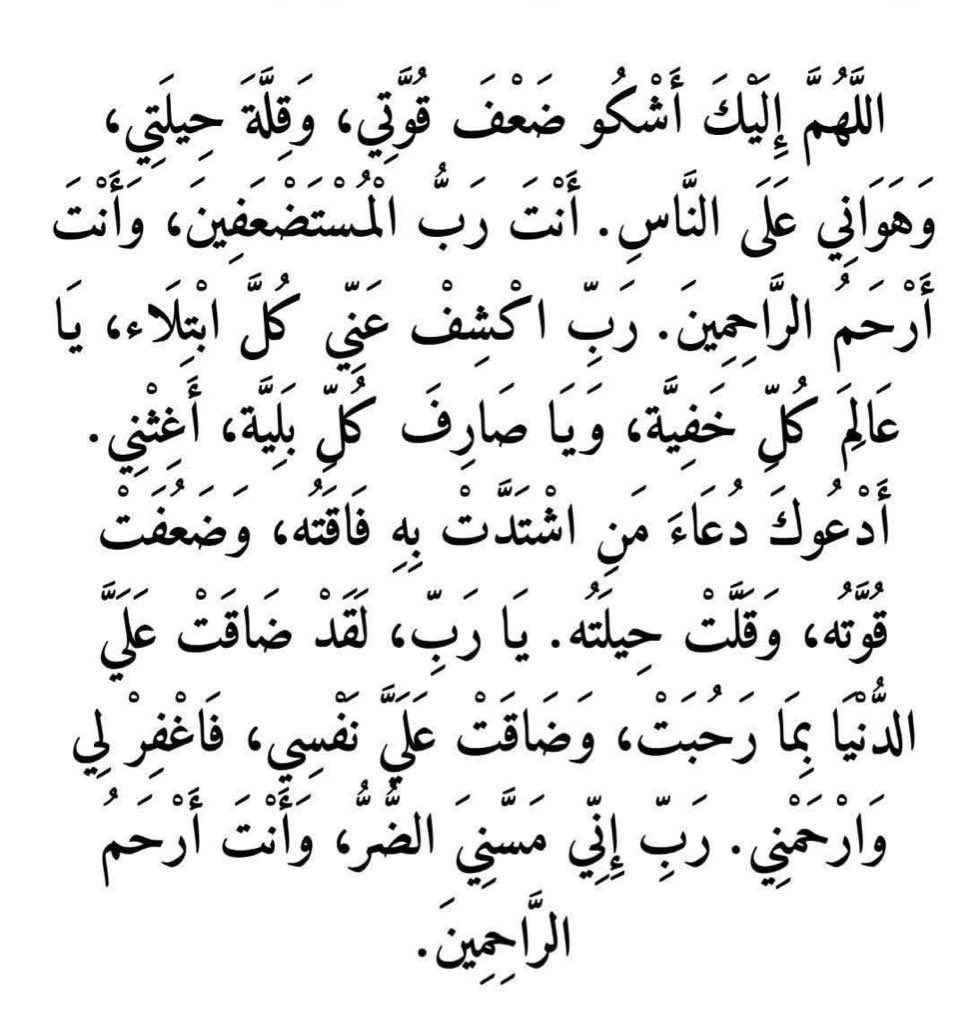 اللَّهُمَّ إِلَيْكَ أَشْكُو ضَعْفَ قُوَّتِي، وَقِلَّةَ حِيلَتِي،
وَهَوَانِي عَلَى النَّاسِ. أَنْتَ رَبُّ الْمُسْتَضْعَفِينَ، وَأَنْتَ
أَرْحَمُ الرَّاحِمِينَ. رَبِّ اكْشِفْ عَنِّي كُلَّ ابْتِلَاء، يَا
عَالِمَ كُلِّ خَفِيَّة، وَيَا صَارِفَ كُلِّ بَلِيَّة، أَغِثْنِي.
أَدْعُوكَ دُعَاءَ مَنِ اشْتَدَّتْ بِهِ فَاقَتُه، وَضَعُفَتْ
قُوَّتُه، وَقَلَّتْ حِيلَتُه. يَا رَبِّ، لَقَدْ ضَاقَتْ عَلَيَّ
الدُّنْيَا بِمَا رَحُبَتْ، وَضَاقَتْ عَلَيَّ نَفْسِي، فَاغْفِرْ لِي
وَارْحَمْنِي. رَبِّ إِنِّي مَسَّنِيَ الضُّرُّ، وَأَنْتَ أَرْحَمُ
الرَّاحِمِينَ.